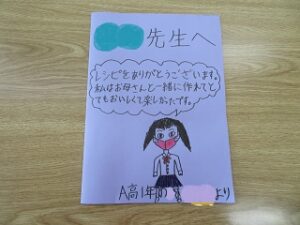 先生へ
レシピをありがとうございます。
私はお母さんと一緒に作れてと
てもおいしくて楽しかったです。
A高1年の
より